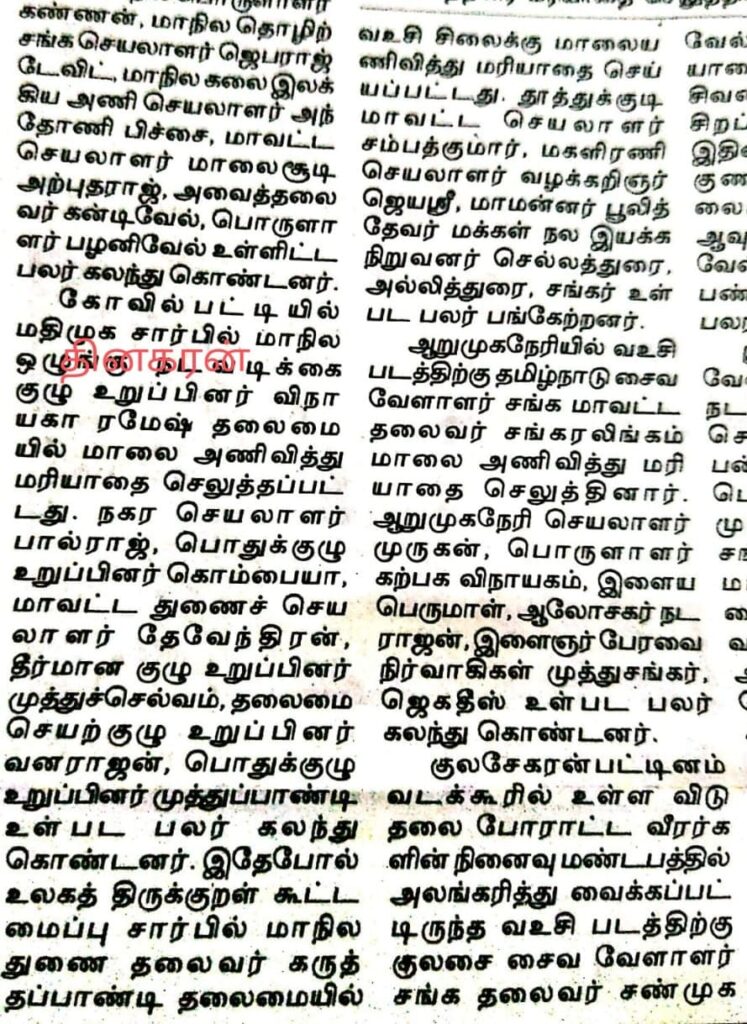 கண்ணன், மாநில தொழிற்
சங்க செயலாளர் ஜெபராஜ்
டேவிட், மாநில கலை இலக்
கிய அணி செயலாளர் அந்
தோணி பிச்சை, மாவட்ட
செயலாளர் மாலைசூடி
அற்புதராஜ், அவைத்தலை
வர் கன்டிவேல், பொருளா
ளர் பழனிவேல் உள்ளிட்ட
பலர் கலந்து கொண்டனர்.
கோவில்பட்டியில்
மதிமுக சார்பில் மாநில
ஒழுங்கு நடவடிக்கை
தினகரன்
குழு உறுப்பினர் விநா
யகா ரமேஷ் தலைமை
யில் மாலை அணிவித்து
மரியாதை செலுத்தப்பட்
டது. நகர செயலாளர்
பால்ராஜ், பொதுக்குழு
உறுப்பினர் கொம்பையா,
மாவட்ட துணைச் செய
லாளர் தேவேந்திரன்,
தீர்மான குழு உறுப்பினர்
முத்துச்செல்வம், தலைமை
செயற்குழு உறுப்பினர்
வனராஜன், பொதுக்குழு
உறுப்பினர் முத்துப்பாண்டி
உள்பட பலர் கலந்து
கொண்டனர். இதேபோல்
உலகத் திருக்குறள் கூட்ட
மைப்பு சார்பில் மாநில
துணை தலைவர் கருத்
தப்பாண்டி தலைமையில்
வஉசி சிலைக்கு மாலைய
ணிவித்து மரியாதை செய்
யப்பட்டது. தூத்துக்குடி
மாவட்ட செயலாளர்
சம்பத்குமார், மகளிரணி
செயலாளர் வழக்கறிஞர்
ஜெயஸ்ரீ, மாமன்னர் பூலித்
தேவர் மக்கள் நல இயக்க
நிறுவனர் செல்லத்துரை,
அல்லித்துரை, சங்கர் உள்
பட பலர் பங்கேற்றனர்.
ஆறுமுகநேரியில் வஉசி
படத்திற்கு தமிழ்நாடு சைவ
வேளாளர் சங்க மாவட்ட
தலைவர் சங்கரலிங்கம்
மாலை அணிவித்து மரி
யாதை செலுத்தினார்.
ஆறுமுகநேரி செயலாளர்
முருகன், பொருளாளர்
கற்பக விநாயகம், இளைய
பெருமாள், ஆலோசகர் நட
ராஜன், இளைஞர் பேரவை
நிர்வாகிகள் முத்துசங்கர்,
ஜெகதீஸ் உள்பட பலர்
கலந்து கொண்டனர்.
குலசேகரன்பட்டினம்
வடக்கூரில் உள்ள விடு
தலை போராட்ட வீரர்க
ளின் நினைவு மண்டபத்தில்
அலங்கரித்து வைக்கப்பட்
டிருந்த வஉசி படத்திற்கு
குலசை சைவ வேளாளர்
சங்க தலைவர் சண்முக